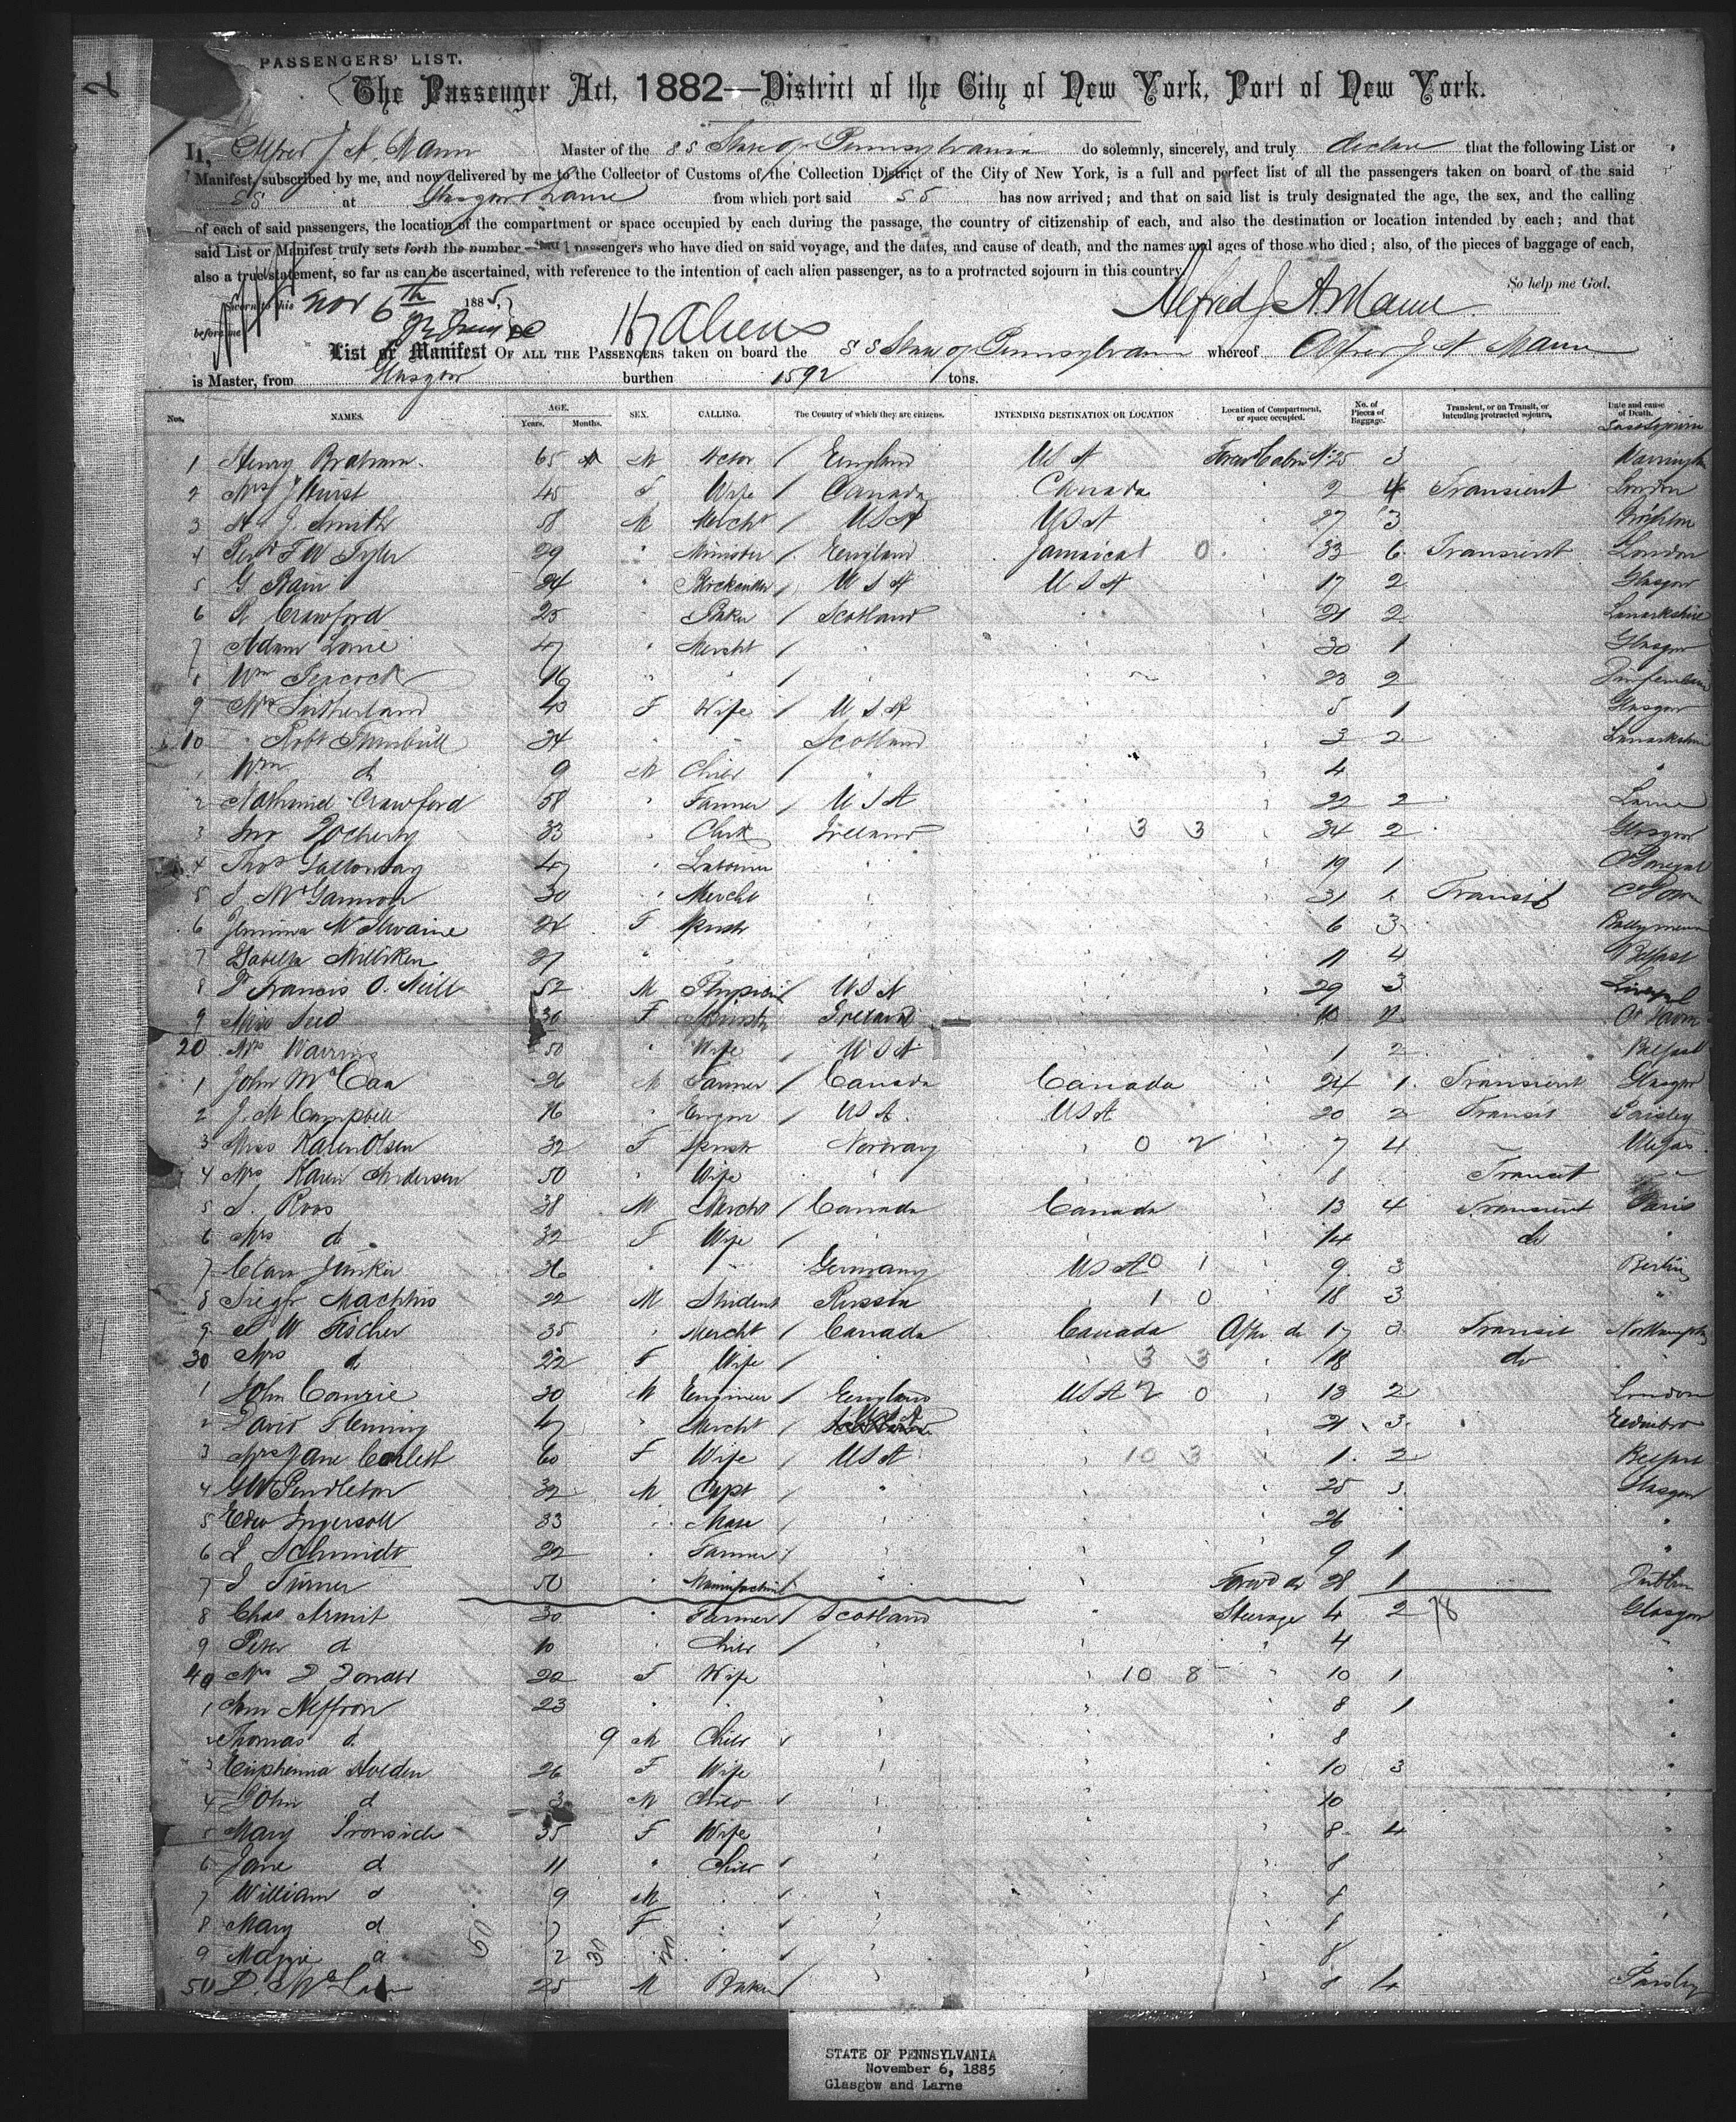 PASSENGERS' LIST.
The Passenger Act, 1882—District of the City of New York, Port of New York.
I, Alfred J A. Mann Master of the SS State of Pennsylvania do solemnly, sincerely, and truly declare that the following List or
Manifest, subscribed by me, and now delivered by me to the Collector of Customs of the Collection District of the City of New York, is a full and perfect list of all the passengers taken on board of the said
SS at Glasgow & Larne from which port said SS has now arrived; and that on said list is truly designated the age, the sex, and the calling
of each of said passengers, the location of the compartment or space occupied by each during the passage, the country of citizenship of each, and also the destination or location intended by each; and that
said List or Manifest truly sets forth the number of passengers who have died on said voyage, and the dates, and cause of death, and the names and ages of those who died; also, of the pieces of baggage of each,
also a true statement, so far as can be ascertained, with reference to the intention of each alien passenger, as to a protracted sojourn in this country.
So help me God.
Sworn to this Nov 6th 1885, Alfred J. A. Mann
before me
List or Manifest OF ALL THE PASSENGERS taken on board the SS State of Pennsylvania whereof Alfred J A Mann
is Master, from Glasgow burthen 1592 tons.
Nos. NAMES. AGE. Years. Months. SEX. CALLING. The Country of which they are citizens. INTENDING DESTINATION OR LOCATION Location of Compartment, or space occupied. No. of Pieces of Baggage. Transient, or on Transit, or intending protracted sojourn. Date and cause of Death.
1 Henry Braham 65 M Actor / England USA 25 3 Warrington
2 Mrs J Hurst 45 F Wife / Canada Canada 2 4 Transient London
3 A J. Smith 58 M Mercht / USA USA 27 3
4 Revd F W Tyler 29 " Minister / England Jamaica 0 33 6 Transient London
5 G Bain 24 " / USA USA 17 2 Glasgow
6 R Crawford 25 Baker / Scotland 21 2 Lanarkshire
7 Adam Lorie 47 " Mercht / " 30 1 Glasgow
8 Wm Peacock 16 " " / " 23 2
9 Mrs Sutherland 40 F Wife / USA 5 1 Glasgow
10 " Robt Turnbull 34 " " Scotland 3 2 Lanarkshire
1 Wm do 9 M Child / " 4 "
2 Nathaniel Crawford 58 " Farmer / USA 22 2 Larne
3 Jno Docherty 33 " Clerk Ireland 3 3 34 2 Glasgow
4 Thos Galloway 47 " Labourer " 19 1 Donegal
5 J McGannon 30 " Mercht " 31 1 Transit
6 Jemima McIlwaine 24 F Spinstr " 6 3 Ballymena
7 Isabella Milliken 27 " " " 11 4 Belfast
8 Dr Francis O. Mill 52 M Physician / USA 29 3 Liverpool
9 Miss 30 F Spinstr Ireland 10 2
20 Mrs Warring 50 " Wife / USA 1 2 Belfast
1 John McCaa 26 M Farmer / Canada Canada 24 1 Transient Glasgow
2 J. M Campbell 26 " / USA USA 20 2 Transit Paisley
3 Miss Karen Olsen 32 F Spinstr Norway " 0 2 7 4
4 Mrs Karen Andersen 50 " Wife " " 8 Transit "
5 S. Roos 38 M Mercht / Canada Canada 13 4 Transient Paris
6 Mrs do 32 F Wife / " " 14 do "
7 Clara Junker 26 " " Germany USA 0 1 9 3 Berlin
8 22 M Student Russia 1 0 18 3 "
9 W Fischer 35 " Mercht / Canada Canada After do 17 3 Transit
30 Mrs do 22 F Wife / " 3 3 18 do
1 John Cowrie 30 M Engineer / England USA 2 0 13 2 London
2 David Fleming 47 " Mercht / USA 21 3 Edinbro
3 Mrs Jane Corlett 60 F Wife / USA 10 3 1 2 Belfast
4 G W Pendleton 32 M Capt / " 25 3 Glasgow
5 Edw Ingersoll 33 " Mate / " 26 "
6 L Schmidt 22 " Farmer / " 9 1 "
7 J Turner 50 " " Forwd do 28 1 Dublin
8 Chas Armit 30 " Farmer / Scotland " Steerage 4 2 78 Glasgow
9 Peter do 10 " Child / " 4 "
40 Mrs D Donald 22 F Wife 10 8 10 1 "
1 Ann Heffron 23 " " " 8 1 "
2 Thomas do 9 M Child " 8 "
3 Euphemia Holden 26 F Wife " 10 3 "
4 John do 3 M Child " 10 "
5 Mary Ironside 35 F Wife " 8 4 "
6 Jane do 11 " Child " 8 "
7 William do 9 M " " 8 "
8 Mary do 7 F " " 8 "
9 Maggie do 2 " " " 8 "
50 D. 25 M Baker / " 8 4 Paisley
STATE OF PENNSYLVANIA
November 6, 1885
Glasgow and Larne